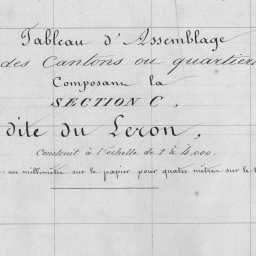 Tableau d'Assemblage
des Cantons ou quartiers
Composant la
SECTION C,
dite du Leron,
Construit à l'échelle de 1 à 4.000.
un millimètre sur le papier pour quatre mètres sur le